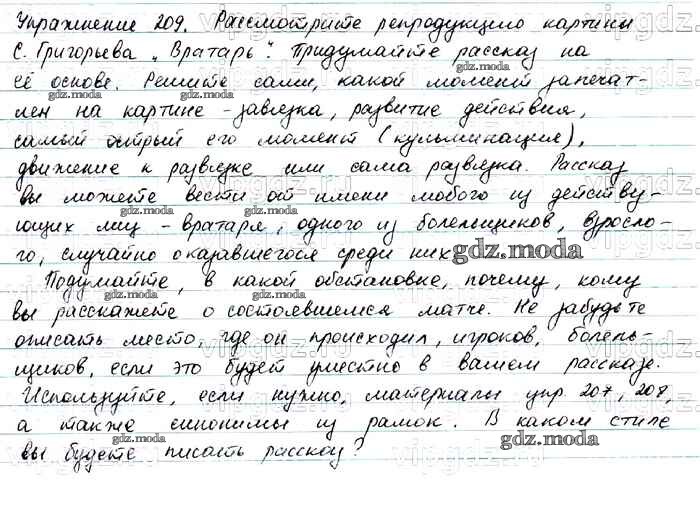 Упражнение 209. Рассмотрите репродукцию картины
С. Григорьева „Вратарь". Придумайте рассказ на
её основе. Решите сами, какой момент запечат-
лен на картине - завязка, развитие действия,
самый острый его момент (кульминация),
движение к развязке или сама развязка. Рассказ
вы можете вести от имени любого из действу-
ющих лиц - вратаря, одного из болельщиков, взросло-
го, случайно оказавшегося среди них.
Подумайте, в какой обстановке, почему, кому
вы расскажете о состоявшемся матче. Не забудьте
описать место, где он происходил, игроков, болель-
щиков, если это будет уместно в вашем рассказе.
Используйте, если нужно, материалы упр. 207, 208,
а также синонимы из рамок. В каком стиле
вы будете писать рассказ?